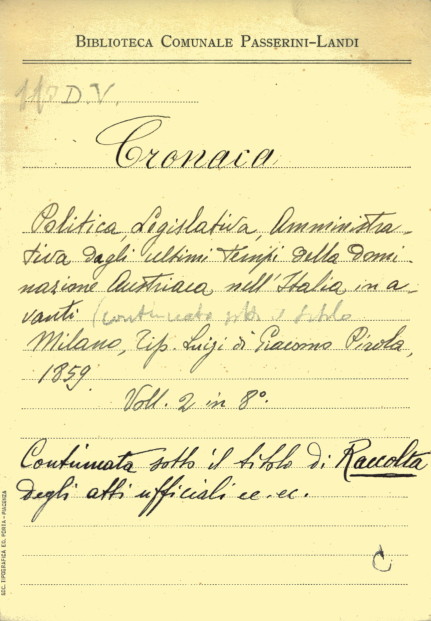 BIBLIOTECA COMUNALE PASSERINI-LANDI
D.V.
Cronaca
Politica, Legislativa, Amministra-
tiva dagli ultimi tempi della domi-
nazione Austriaca nell'Italia in a-
vanti (continuata sotto il titolo
Milano, Tip. Luigi di Giacomo Pirola,
1859
Voll. 2 in 8°.
Continuata sotto il titolo di Raccolta
degli atti ufficiali ec. ec.
C
SOC. TIPOGRAFICA ED. PORTA - PIACENZA